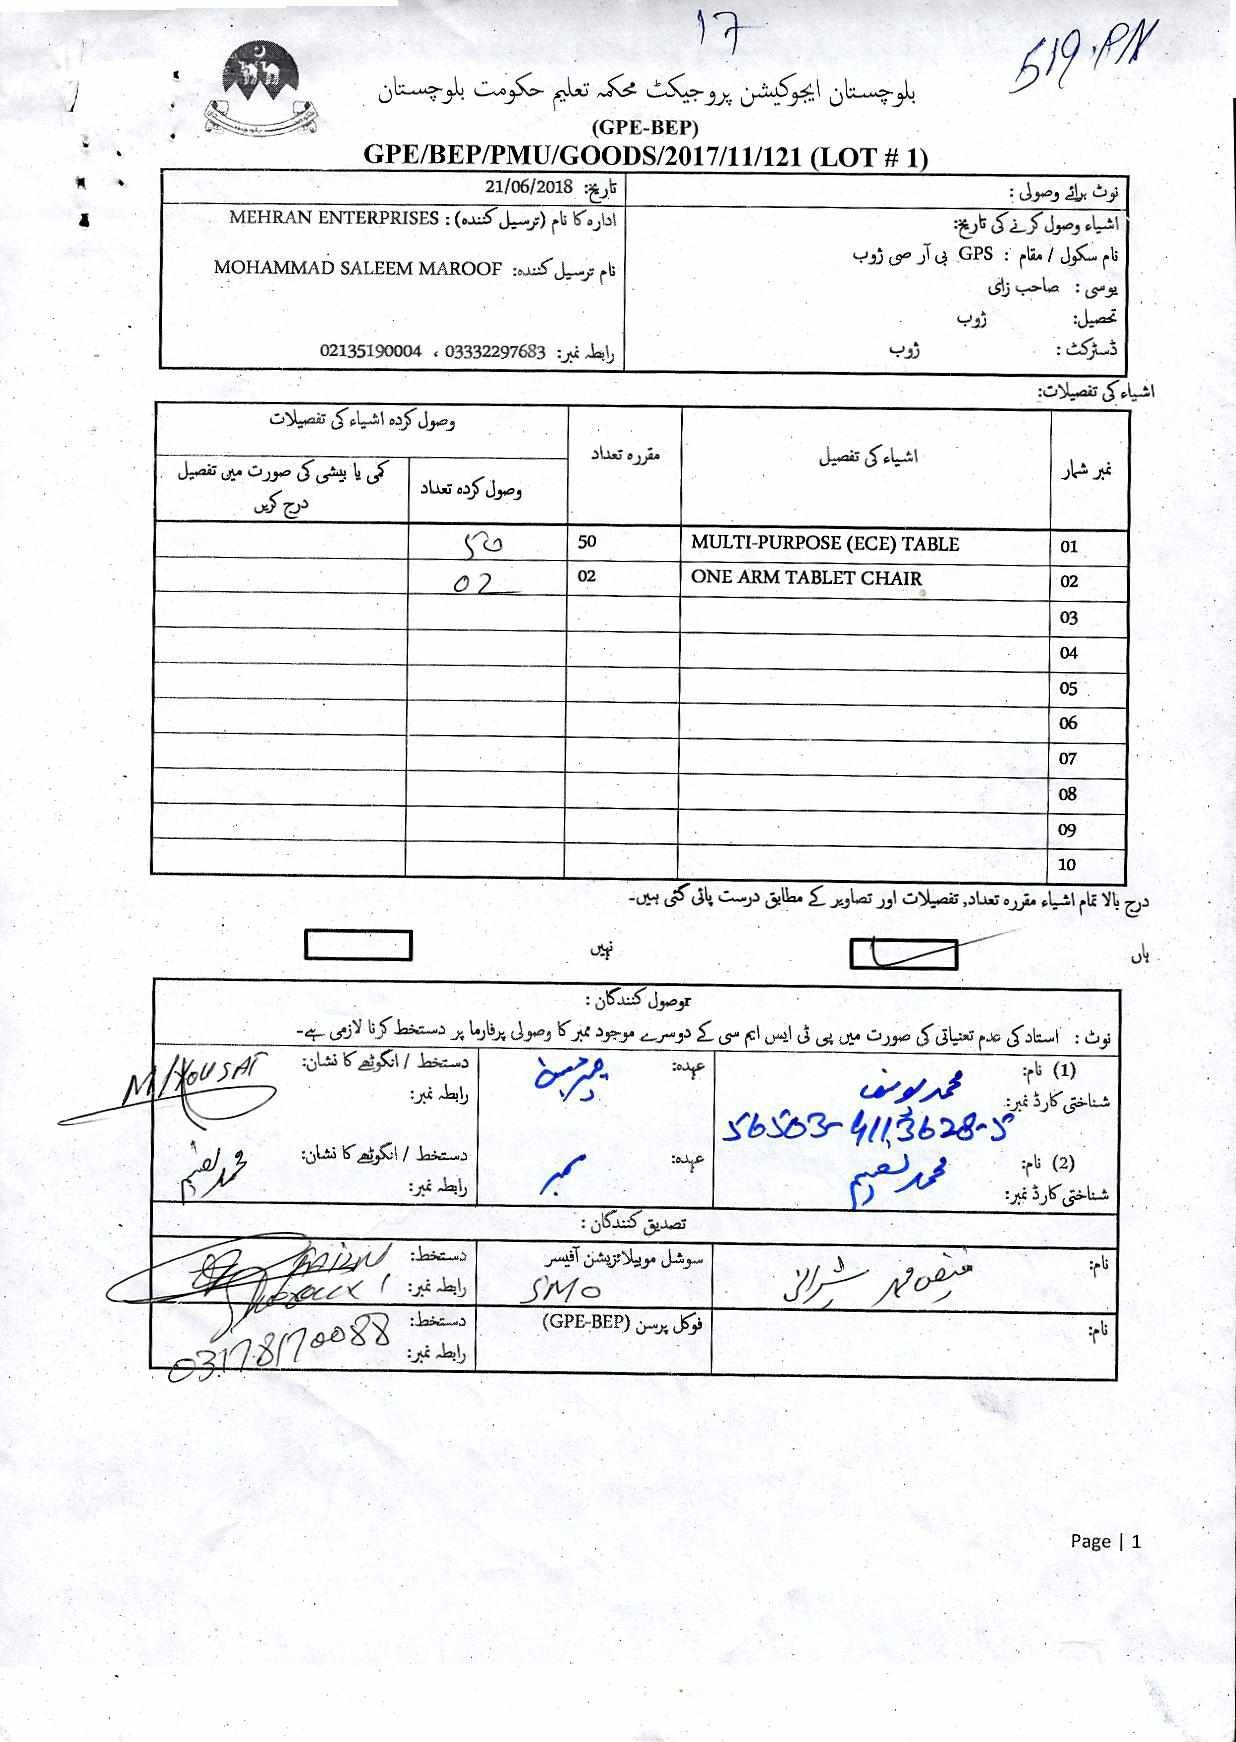 17
519.PN
بلوچستان ایجوکیشن پروجیکٹ محکمہ تعلیم حکومت بلوچستان
(GPE-BEP)
GPE/BEP/PMU/GOODS/2017/11/121 (LOT # 1)
نوٹ برائے وصولی :
تاریخ: 21/06/2018
اشیاء وصول کرنے کی تاریخ:
نام سکول / مقام : GPS بی آر صی ژوب
یوسی : صاحب زای
تحصیل: ژوب
ڈسٹرکٹ : ژوب
ادارہ کا نام (ترسیل کنندہ) : MEHRAN ENTERPRISES
نام ترسیل کنندہ: MOHAMMAD SALEEM MAROOF
رابطہ نمبر: 03332297683 ، 02135190004
اشیاء کی تفصیلات:
نمبر شمار
اشیاء کی تفصیل
مقررہ تعداد
وصول کردہ اشیاء کی تفصیلات
وصول کردہ تعداد
کمی یا بیشی کی صورت میں تفصیل
درج کریں
01 MULTI-PURPOSE (ECE) TABLE 50 50
02 ONE ARM TABLET CHAIR 02 02
03
04
05
06
07
08
09
10
درج بالا تمام اشیاء مقررہ تعداد, تفصیلات اور تصاویر کے مطابق درست پائی گئی ہیں۔
ہاں
نہیں
وصول کنندگان :
نوٹ : استاد کی عدم تعنیاتی کی صورت میں پی ٹی ایس ایم سی کے دوسرے موجود ممبر کا وصولی پرفارما پر دستخط کرنا لازمی ہے۔
(1) نام: محمد یوسف
شناختی کارڈ نمبر: 56503-4113628-5
عہدہ: چیرمین
دستخط / انگوٹھے کا نشان: M/YOUSAF
رابطہ نمبر:
(2) نام: محمد نعیم
شناختی کارڈ نمبر:
عہدہ: ممبر
دستخط / انگوٹھے کا نشان: محمد نعیم
رابطہ نمبر:
تصدیق کنندگان :
نام: فیض محمد شیرانی
سوشل موبیلائزیشن آفیسر
SMO
دستخط:
رابطہ نمبر:
نام:
فوکل پرسن (GPE-BEP)
دستخط:
رابطہ نمبر:
03178170088
Page | 1